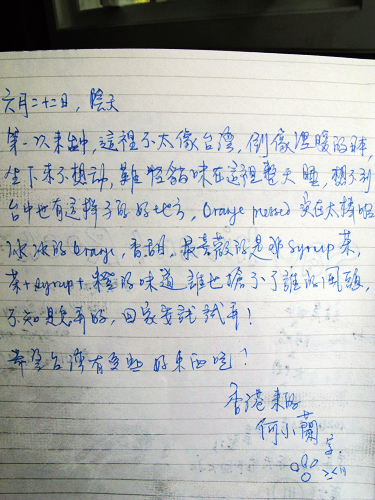 六月二十二日,陰天
第一次來台中,這裡不太像台灣,倒像溫暖的日本,
坐下來不想动,難怪貓咪在這裡整天睡,想不到
台中也有这樣子的好地方,Orange pressed 实在太特的
冰冰的 Orange,香甜,最喜歡的是那 syrup 茶,
茶+syrup+橙的味道 誰也搶不了誰的風頭,
不知是怎弄的,回家要試試弄!
希望台灣有多些好東西吃!
香港來的
何小蘭
字